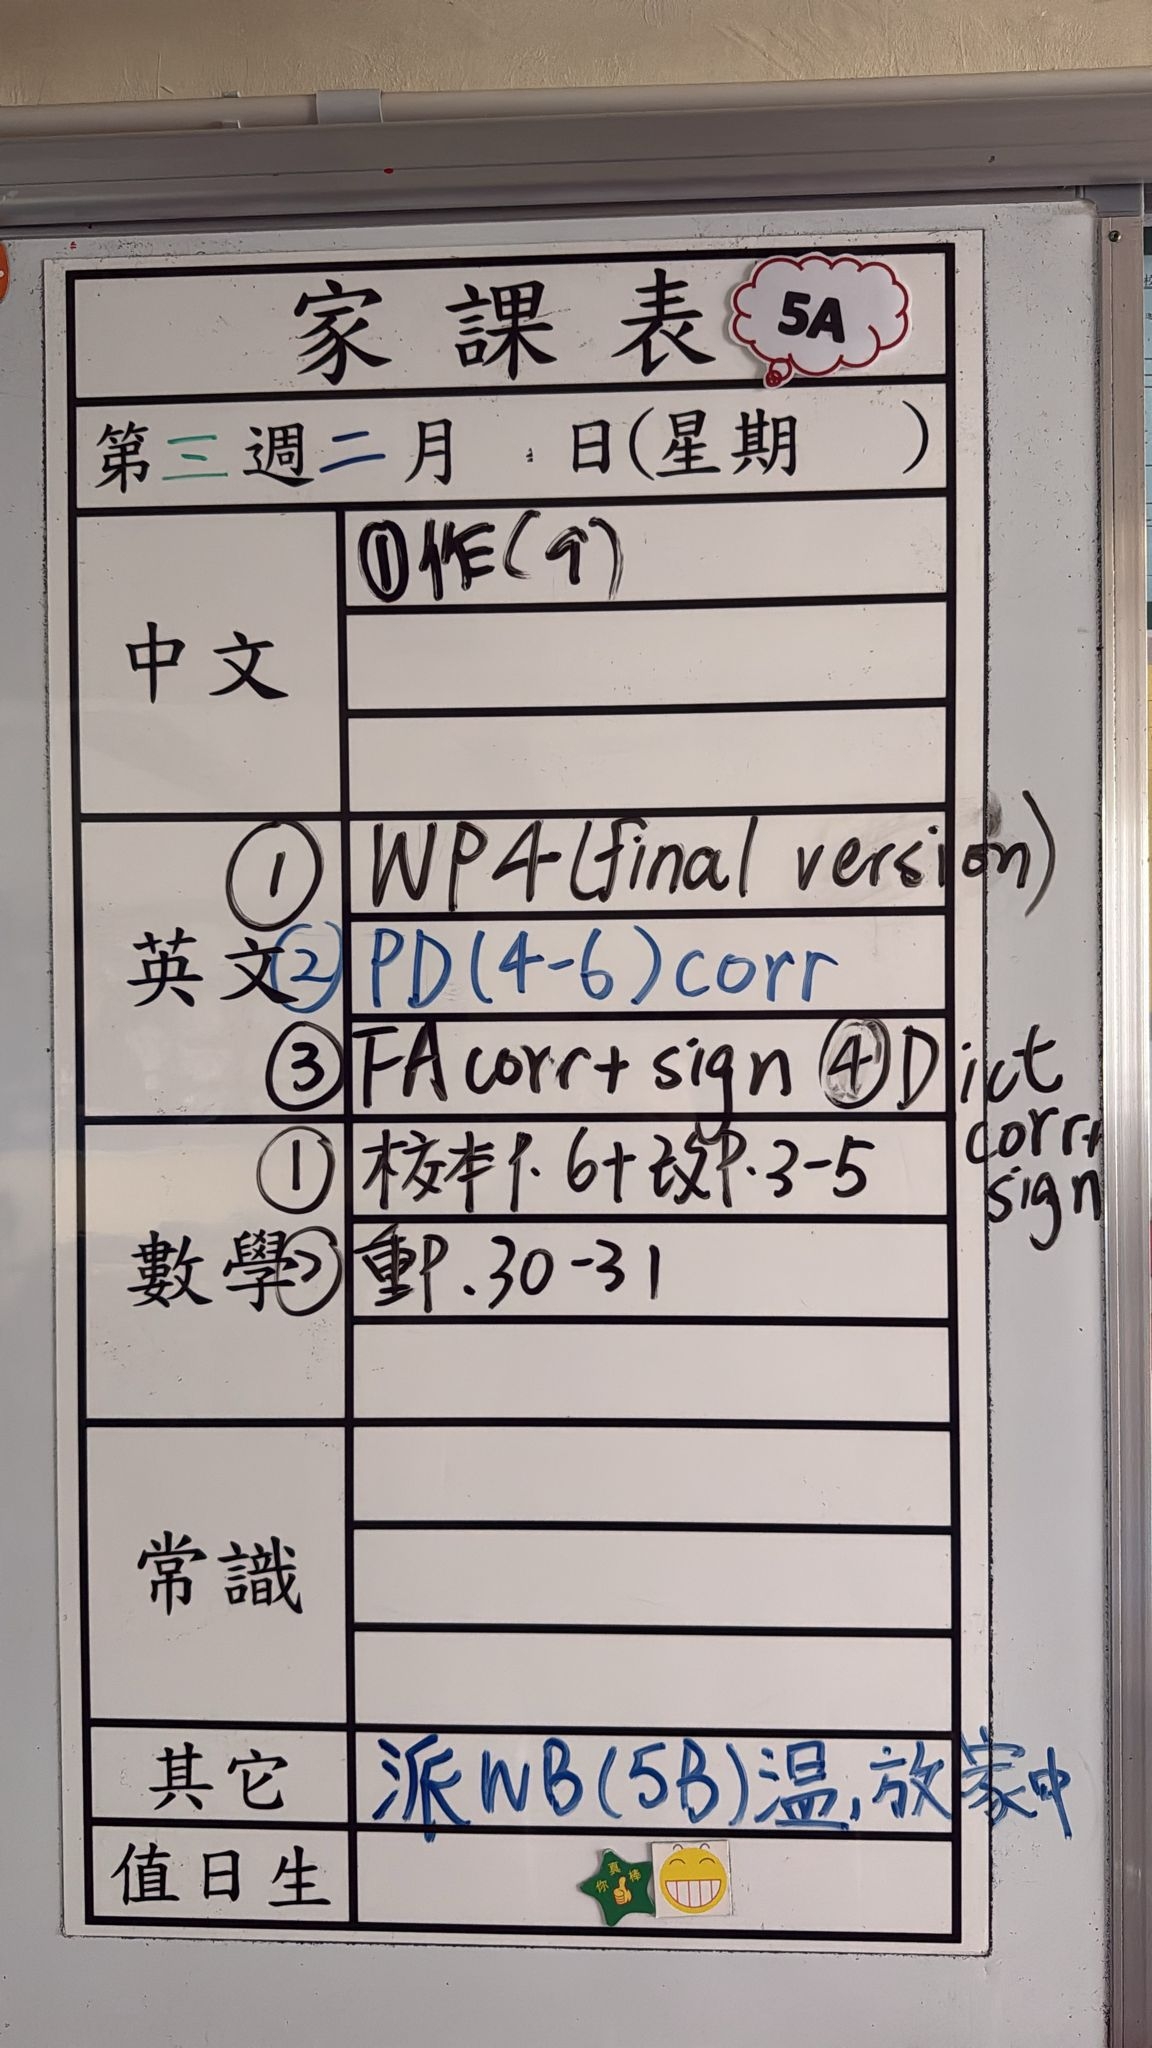 家課表 5A
第三週二月 日(星期 )
中文
①作(个)
英文
① WP4(final version)
② PD(4-6)corr
③ FA corr+ sign ④Dict
corr+
sign
數學
① 校本P.6+改P.3-5
② 重P.30-31
常識
其它
派WB(5B)温,放家中
值日生
你真棒